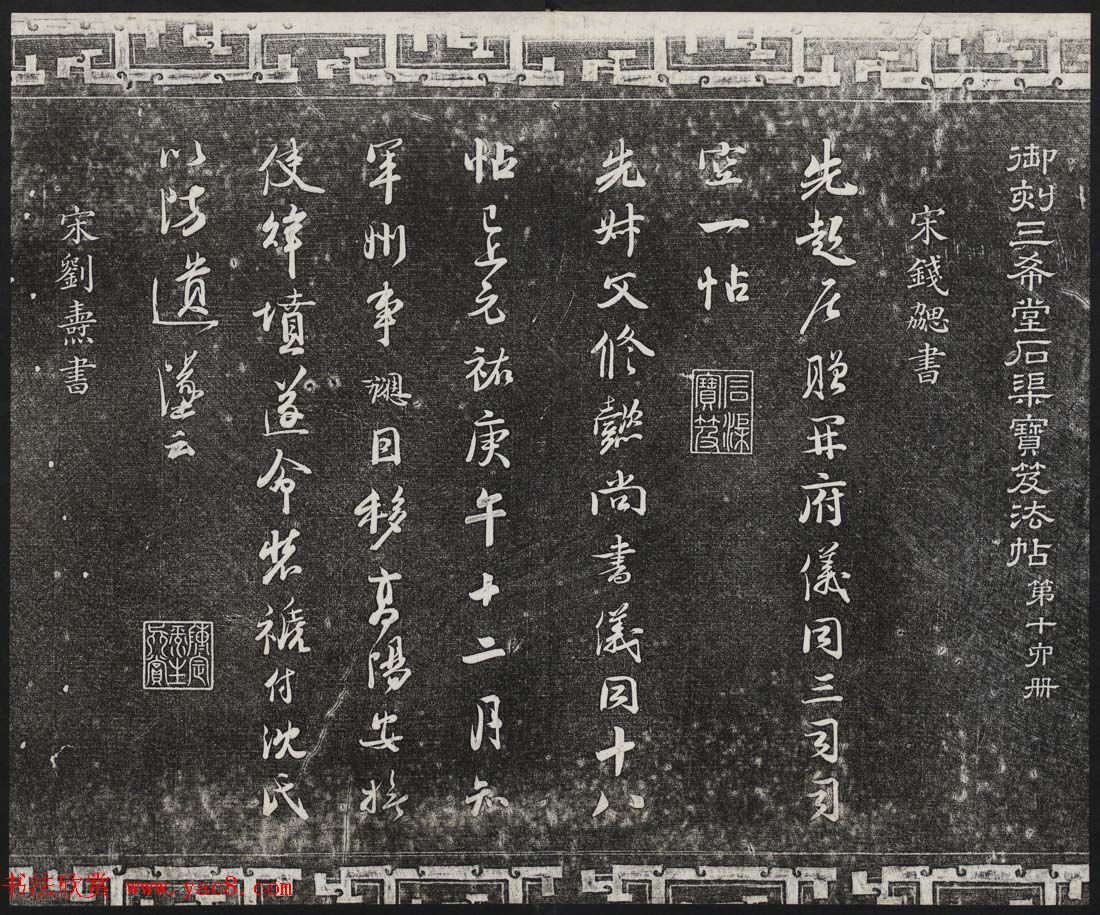 御刻三希堂石渠寶笈法帖 第十卯册
宋錢勰書
先起居贈開府儀同三司司
空一帖
石渠寶笈
先叔父修懿尚書儀同十八
帖已上元祐庚午十二月知
軍州事勰因移高陽安撫
使律墳遂命裝褫付沈氏
以防遺墜云
宋劉燾書
书法欣赏 www.yac8.com